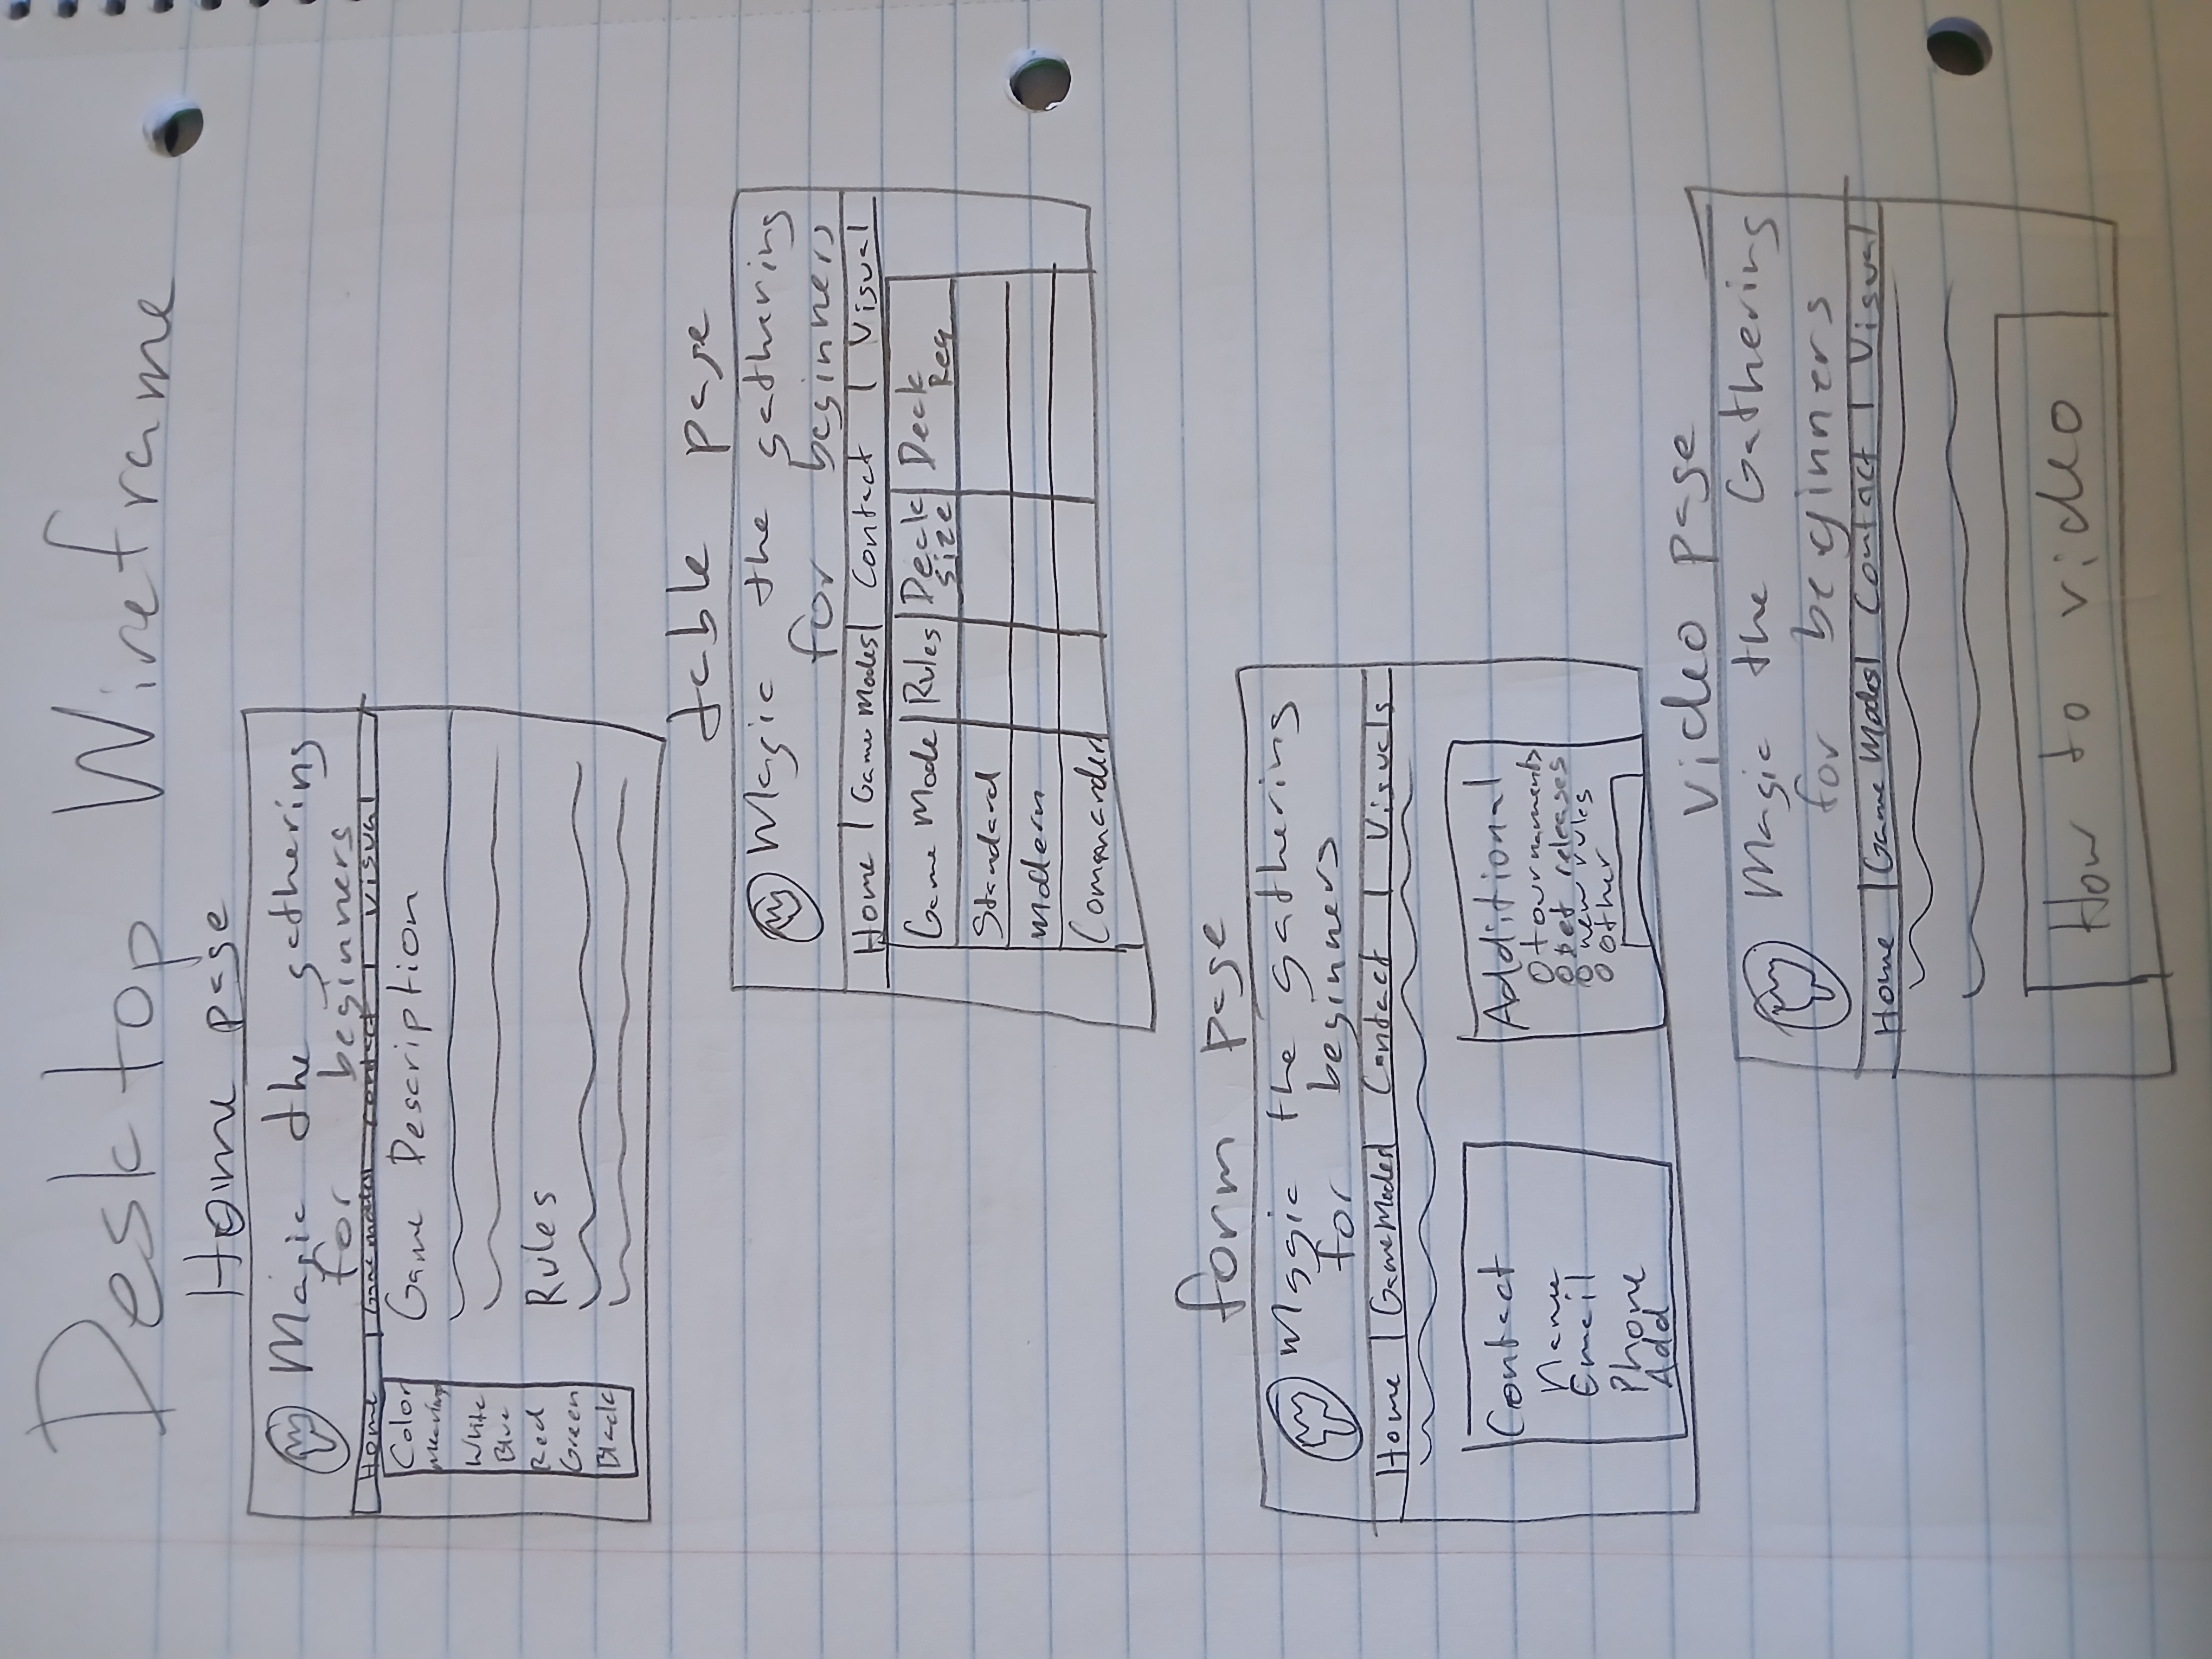 Desktop Wireframe
Home page
Magic the gathering
for beginners
Home | Game modes | contact | Visual
Color
meaning
White
Blue
Red
Green
Black
Game Description
Rules
table page
Magic the gathering
for beginners
Home | Game Modes | Contact | Visual
Game Mode | Rules | Deck size | Deck Req
Standard
modern
Commander
form page
Magic the gathering
for beginners
Home | Game Modes | Contact | Visuals
Contact
Name
Email
Phone
Add
Additional
tournaments
set releases
new rules
other
video page
Magic the Gathering
for beginners
Home | Game Modes | Contact | Visual
How to video